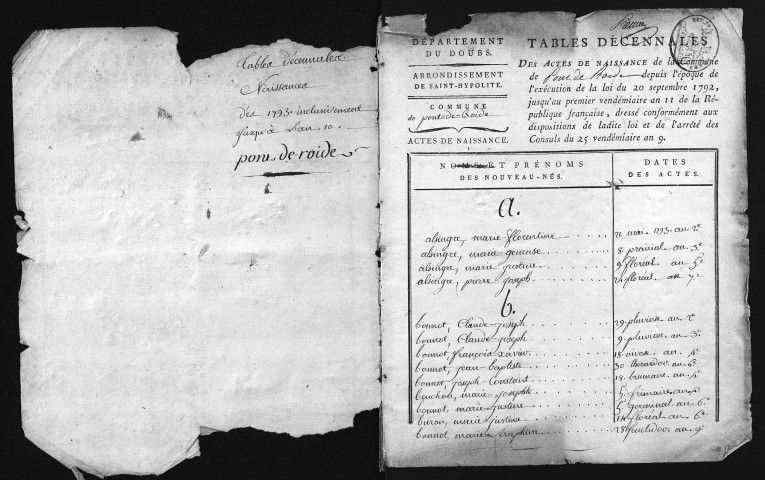 Tables décennales
Naissances
des 1793 inclusivement
jusqu'à l'an 10.
pont-de-roide
DÉPARTEMENT
DU DOUBS.
ARRONDISSEMENT
DE SAINT-HYPOLITE.
COMMUNE
de pont-de-roide
ACTES DE NAISSANCE.
TABLES DÉCENNALES
DES ACTES DE NAISSANCE de la Commune
de Pont de Roide depuis l'époque de
l'exécution de la loi du 20 septembre 1792,
jusqu'au premier vendémiaire an 11 de la Ré-
publique française, dressé conformément aux
dispositions de ladite loi et de l'arrêté des
Consuls du 25 vendémiaire an 9.
NOMS ET PRÉNOMS
DES NOUVEAU-NÉS.
DATES
DES ACTES.
a.
abingre, marie florentine 21 mai 1793. an 2e
abingre, marie 8 prairial an 3e
abingre, marie justine 9 floréal an 5e
abingre, pierre joseph 2 floréal an 7e
b.
bonnot, Claude-joseph 29 pluviose an 2e
bonnot, Claude-joseph 9 pluviose an 3e
bonnot, françois xavier 18 nivose an 4e
bonnot, jean-baptiste 30 thermidor an 6e
bonnot, joseph-constant 18 brumaire an 4e
marie-josephte 5 frimaire an
bonnot, marie-justine 5 germinal an 6e
buron, marie justine 14 floréal an 6e
bonnot, marie séraphine 28 fructidor an 9e